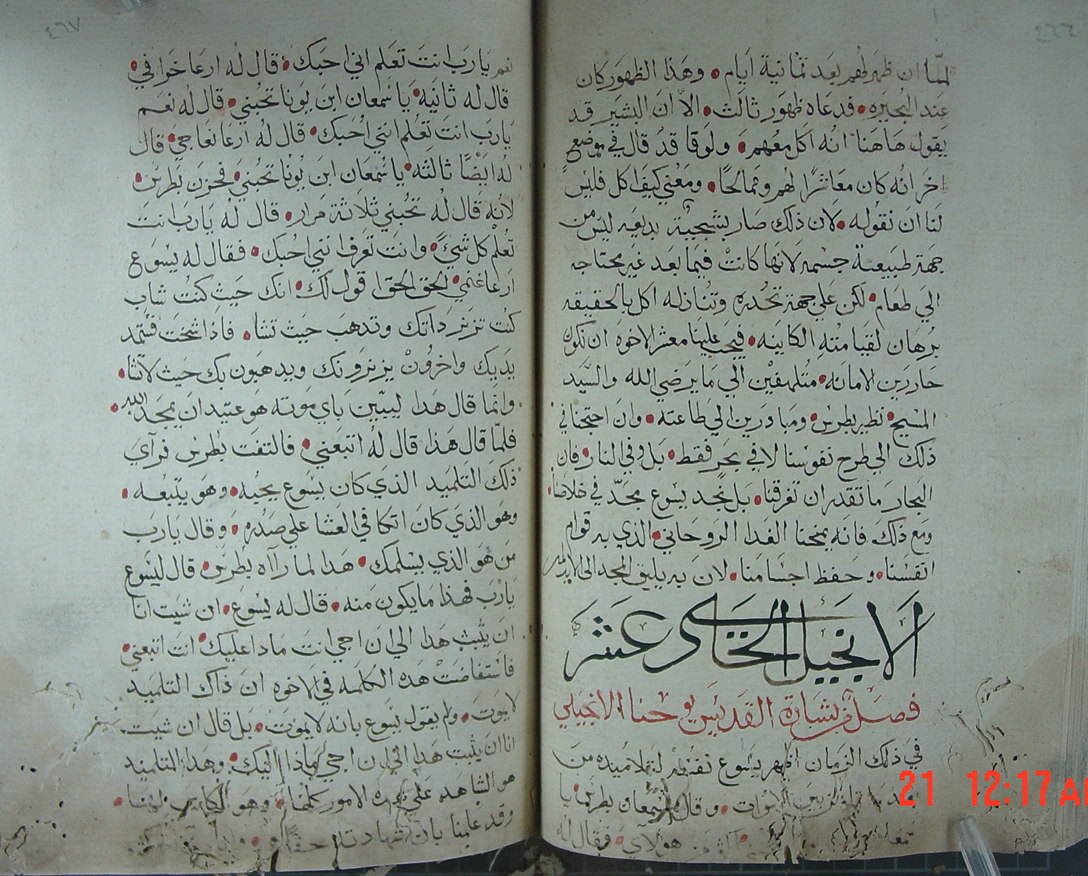 ٤٦٦
لما ان ظهر لهم بعد ثمانية ايام • وهذا الظهور كان
عند البحيره • قد عاه ظهور ثالث • الا ان البشير قد
يقول هاهنا انه اكل معهم • ولوقا قد قال في موضع
اخر انه كان معاشرا لهم وممالحا • ومعني كيف اكل فليس
لنا ان نقوله • لان ذلك صار بسجية بديعه ليس من
جهة طبيعة جسمه لانها كانت فيما بعد غير محتاجه
الي طعام • لكن علي جهة تحدره وتنازله اكل بالحقيقه
برهان لقيامته الكاينه • فيجب علينا معشر الاخوه ان نكون
حارين الامانه • متلهفين الي ما يرضي الله والسيد
المسيح • نظير بطرس • ومبادرين الي طاعته • وان احتجنا في
ذلك الي طرح نفوسنا لا في بحر فقط • بل وفي النار • فان
البحار ما تقدر ان تغرقنا • بل نجد يسوع مجد في خلاصنا •
ومع ذلك فانه يمنحنا الغدا الروحاني • الذي به قوام
انفسنا • وحفظ اجسامنا • لان به يليق المجد الي الابد
الانجيل الحادي عشر
فصل من بشارة القديس يوحنا الانجيلي
في ذلك الزمان اظهر يسوع نفسه لتلاميذه من
بعد ما قام من بين الاموات • وقال لسمعان بطرس يا
هولاي • فقال له
٤٦٧
نعم يارب انت تعلم اني احبك • قال له ارعا خرافي •
قال له ثانية • يا سمعان ابن يونا تحبني • قال له نعم
يارب انت تعلم انني احبك • قال له ارعا نعاجي • قال
له ايضا ثالثه • يا سمعان ابن يونا تحبني • فحزن بطرس •
لانه قال له تحبني ثلاثة مرار • قال له يارب انت
تعلم كل شي • وانت تعرف انني احبك • فقال له يسوع
ارعا غنمي • الحق الحق اقول لك • انك حيث كنت شاب
كنت تزنر ذاتك وتذهب حيث تشا • فاذا شخت فتمد
يديك واخرون يزنرونك ويذهبون بك حيث لا تشا •
وانما قال هذا ليبين باي موته هو عتيد ان يمجد الله •
فلما قال هذا قال له اتبعني • فالتفت بطرس فراي
ذلك التلميد الذي كان يسوع يحبه • وهو يتبعه •
وهو الذي كان اتكا في العشا علي صدره • وقال يارب
من هو الذي يسلمك • هذا لما رااه بطرس • قال ليسوع
يارب فهذا ما يكون منه • قال له يسوع • ان شيت انا
ان يثبت هذا الي ان اجي انت ماذا عليك • انت اتبعني •
فاستفاضت هذه الكلمه في الاخوه ان ذاك التلميد
لا يموت • ولم يقول يسوع بانه لا يموت • بل قال ان شيت
انا ان يثبت هذا الي ان اجي ماذا اليك • وهذا التلميد
هو الشاهد علي هذه الامور كلها • وهو الكاتب لها •
وقد علمنا بان شهادته حقا
21 12:17 A